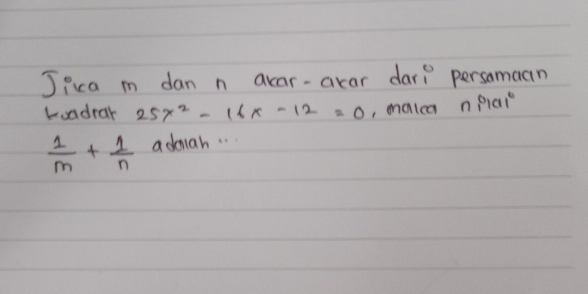 Jika m dan n akar-akar dari persamaan
kuadrat 25x² - 16x - 12 = 0, maka nilai
1/m + 1/n adalah ...